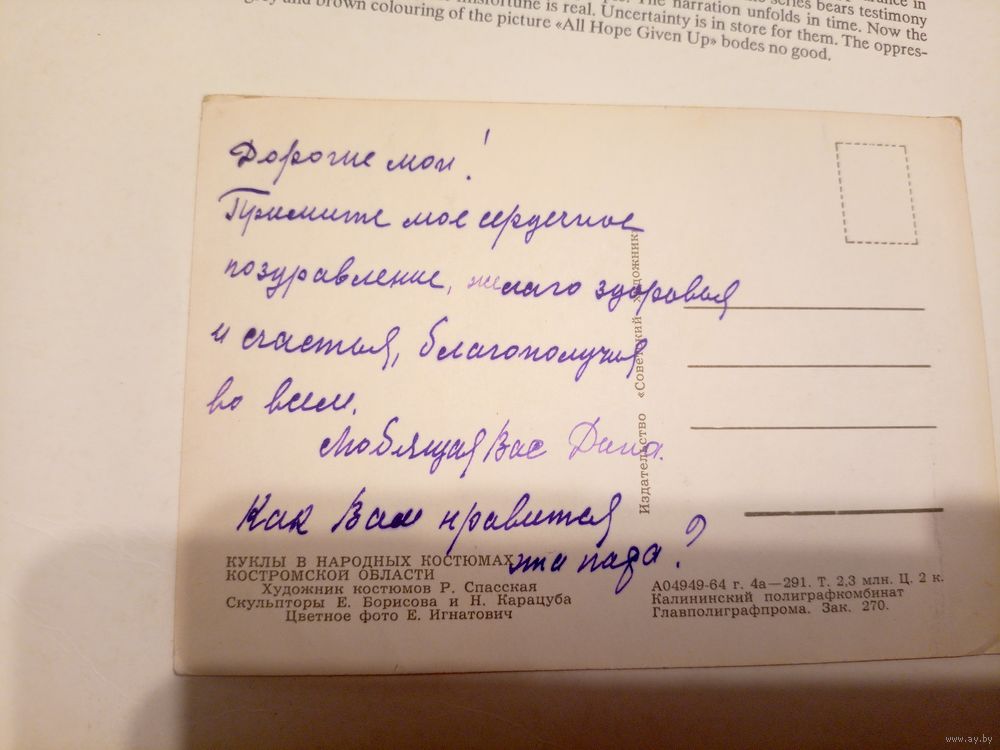 series bears testimony
misfortune is real. The narration unfolds in time. Now the
and brown colouring of the picture «All Hope Given Up» bodes no good.
Uncertainty is in store for them. The oppres-
Дорогие мои!
Примите мое сердечное
поздравление, желаю здоровья
и счастья, благополучия
во всем.
Любящая Вас Дина.
Как Вам нравится
эта пара?
Издательство «Советский художник»
КУКЛЫ В НАРОДНЫХ КОСТЮМАХ
КОСТРОМСКОЙ ОБЛАСТИ
Художник костюмов Р. Спасская
Скульпторы Е. Борисова и Н. Карацуба
Цветное фото Е. Игнатович
А04949-64 г. 4а—291. Т. 2,3 млн. Ц. 2 к.
Калининский полиграфкомбинат
Главполиграфпрома. Зак. 270.
www.ay.by